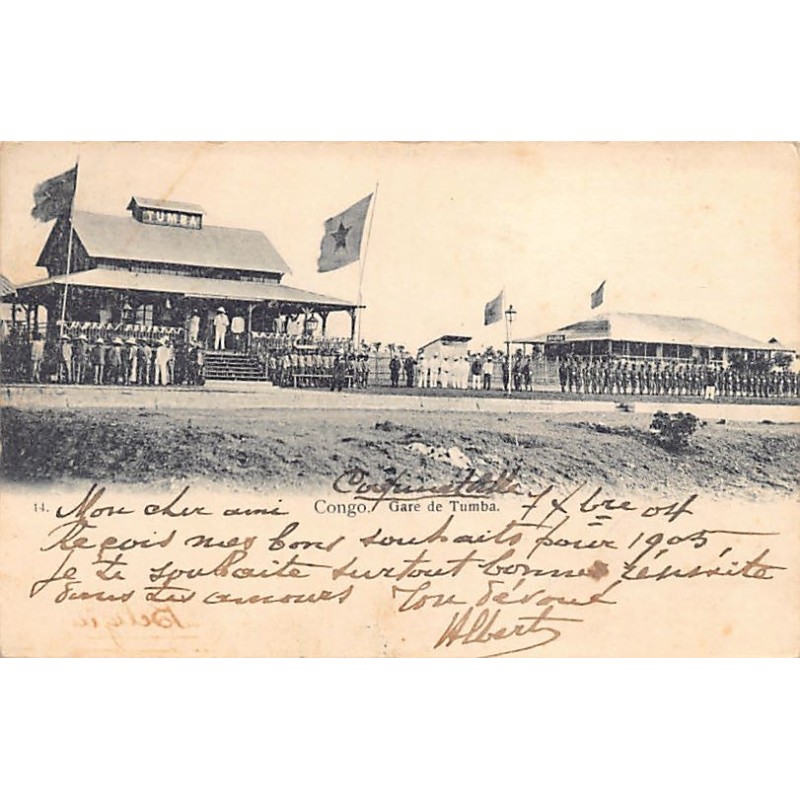 TUMBA
14. Congo. Gare de Tumba.
Coquilhatville 7 Xbre 04
Mon cher ami
Reçois mes bons souhaits pour 1905,
Je te souhaite surtout bonne réussite
dans tes amours Ton dévoué
Albert